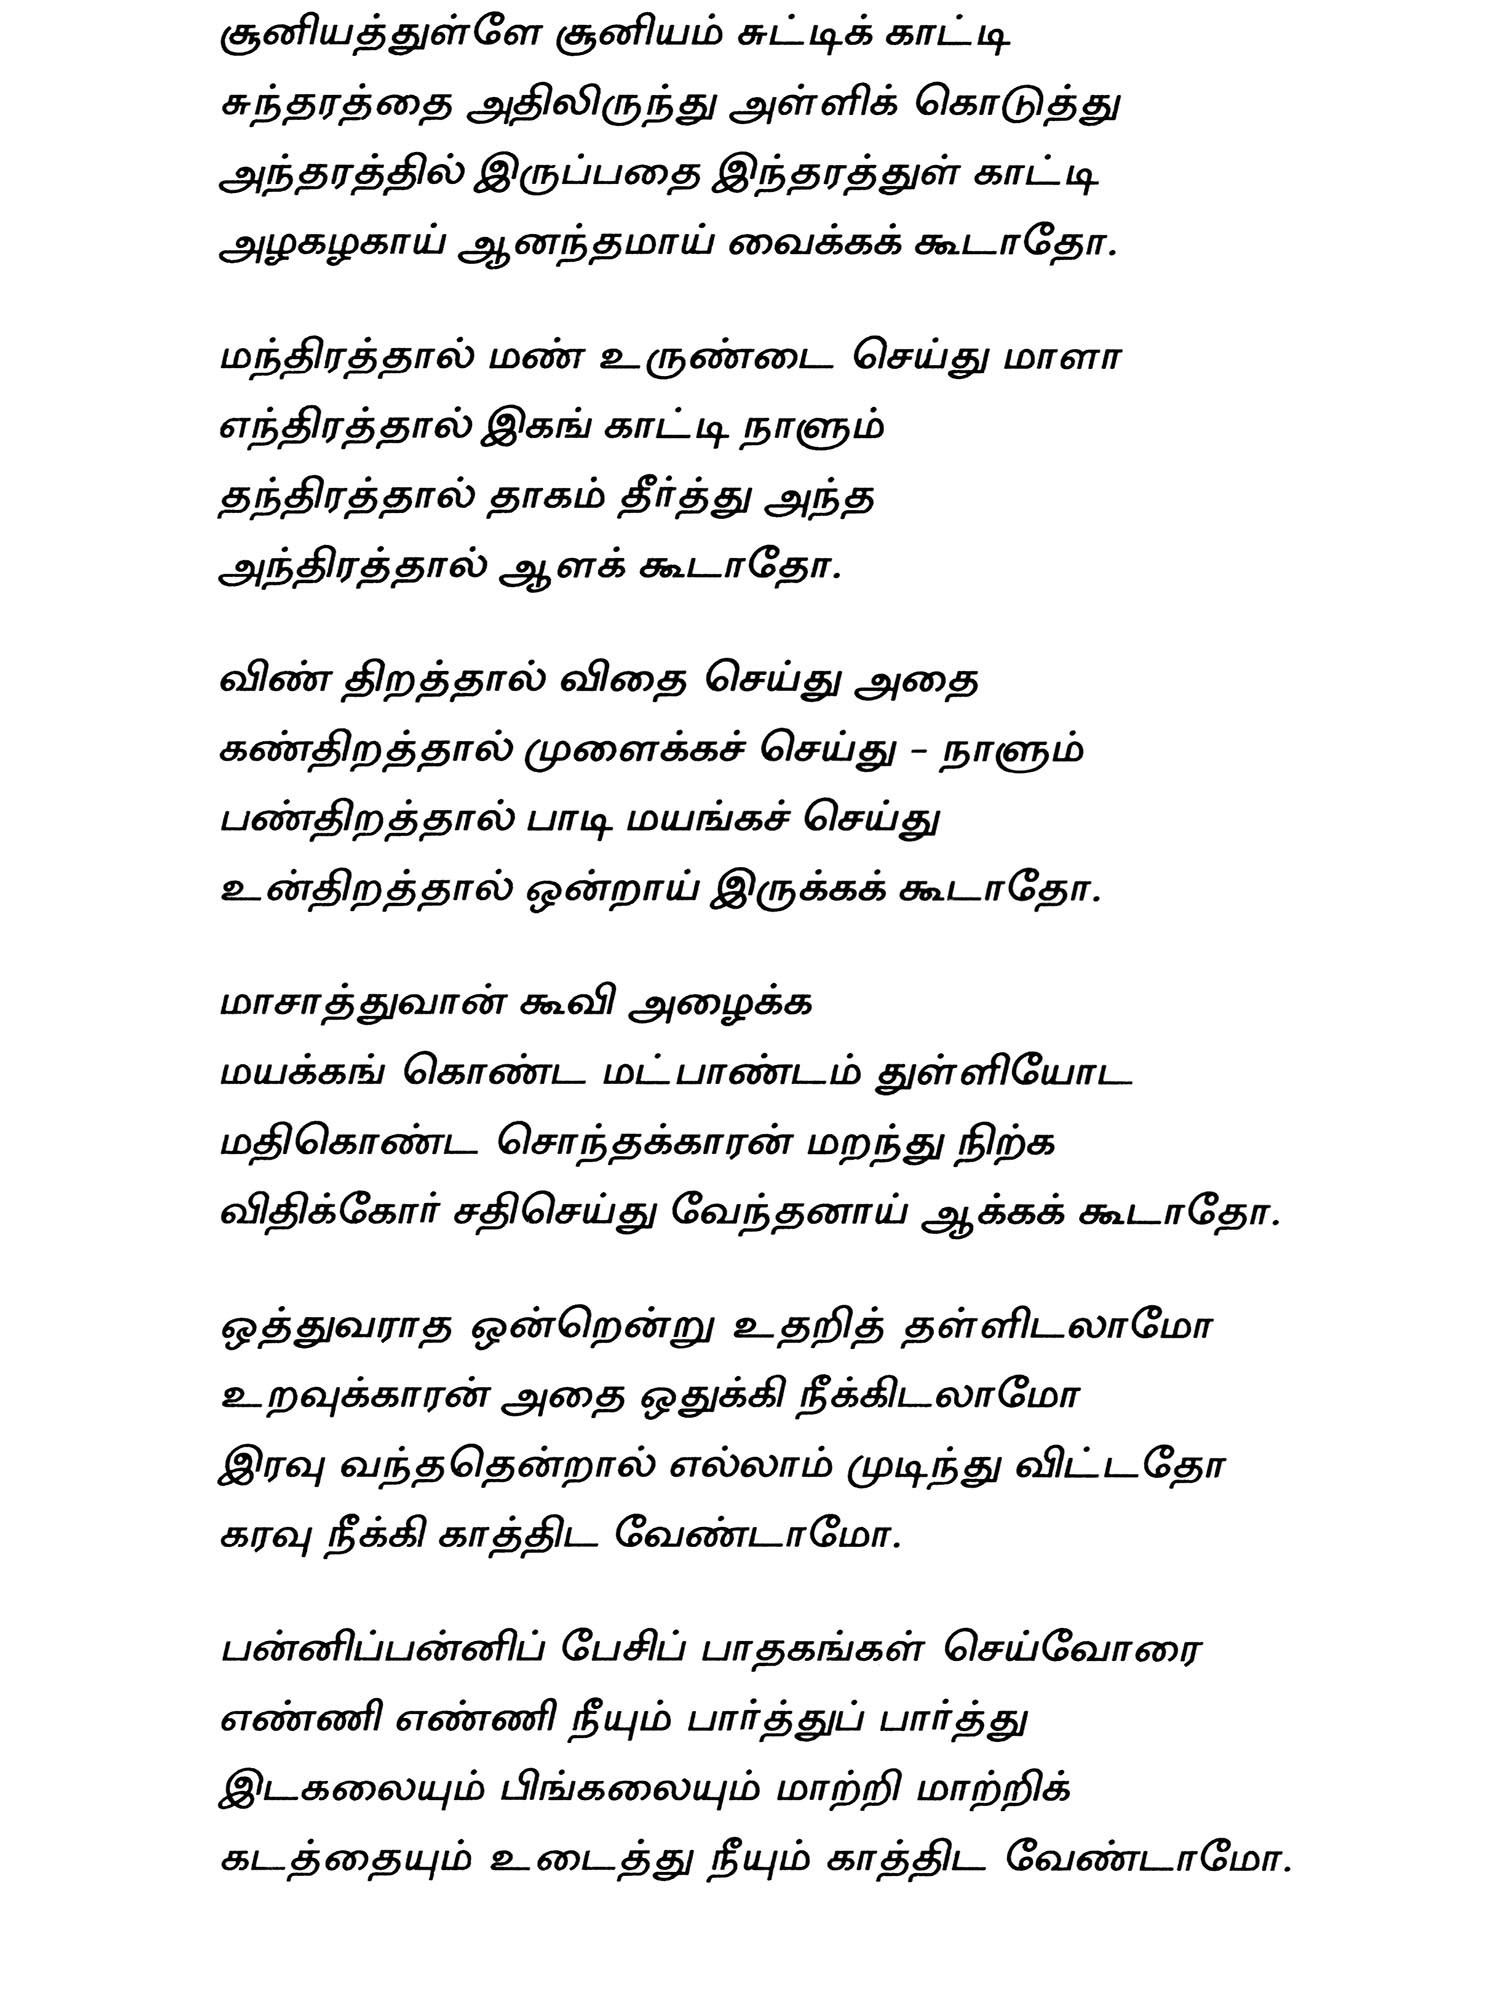 சூனியத்துள்ளே சூனியம் சுட்டிக் காட்டி
சுந்தரத்தை அதிலிருந்து அள்ளிக் கொடுத்து
அந்தரத்தில் இருப்பதை இந்தரத்துள் காட்டி
அழகழகாய் ஆனந்தமாய் வைக்கக் கூடாதோ.
மந்திரத்தால் மண் உருண்டை செய்து மாளா
எந்திரத்தால் இகங் காட்டி நாளும்
தந்திரத்தால் தாகம் தீர்த்து அந்த
அந்திரத்தால் ஆளக் கூடாதோ.
விண் திறத்தால் விதை செய்து அதை
கண்திறத்தால் முளைக்கச் செய்து – நாளும்
பண்திறத்தால் பாடி மயங்கச் செய்து
உன்திறத்தால் ஒன்றாய் இருக்கக் கூடாதோ.
மாசாத்துவான் கூவி அழைக்க
மயக்கங் கொண்ட மட்பாண்டம் துள்ளியோட
மதிகொண்ட சொந்தக்காரன் மறந்து நிற்க
விதிக்கோர் சதிசெய்து வேந்தனாய் ஆக்கக் கூடாதோ.
ஒத்துவராத ஒன்றென்று உதறித் தள்ளிடலாமோ
உறவுக்காரன் அதை ஒதுக்கி நீக்கிடலாமோ
இரவு வந்ததென்றால் எல்லாம் முடிந்து விட்டதோ
கரவு நீக்கி காத்திட வேண்டாமோ.
பன்னிப்பன்னிப் பேசிப் பாதகங்கள் செய்வோரை
எண்ணி எண்ணி நீயும் பார்த்துப் பார்த்து
இடகலையும் பிங்கலையும் மாற்றி மாற்றிக்
கடத்தையும் உடைத்து நீயும் காத்திட வேண்டாமோ.